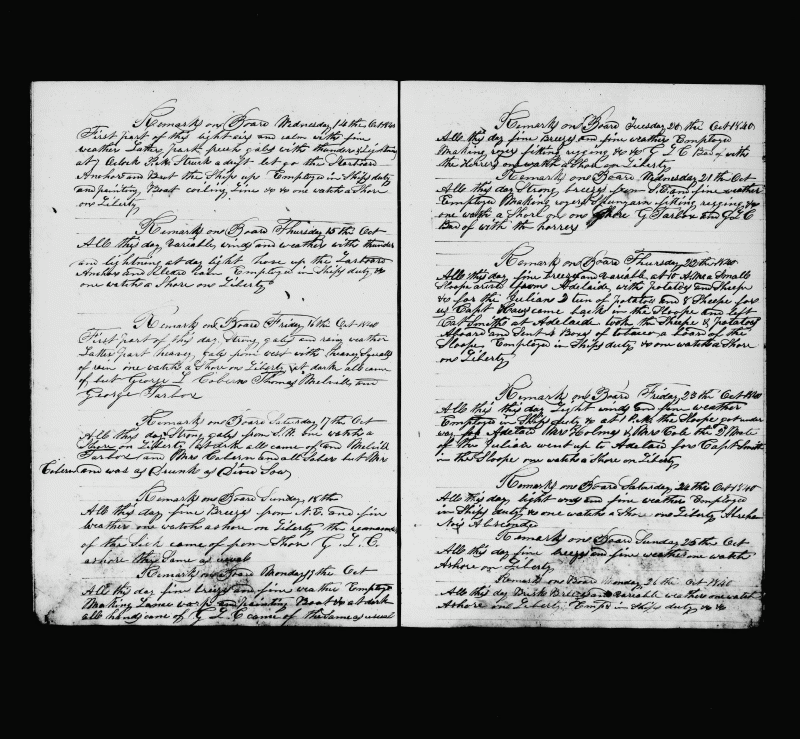 Remarks on Board Wednesday 14th Oct 1840
First part of this light airs and calm with fine
weather Latter part fresh gals with thunder & Lightning
at Oclock P.M. Struck adrift let go the Starbord
Anchor and Bent the Ship up Employed in Ships duty
and painting Boat coiling Line &c &c one watch a Shore
on Liberty
Remarks on Board Thursday 15th Oct
All this day variable winds and weather with thunder
and lightning at day light hove up the Larboard
Anchor and Employed in Ships duty &c
one watch a Shore on Liberty
Remarks on Board Friday 16th Oct 1840
First part of this day Strong gals and rainy weather
Latter part heavy gals from west with heavy Squalls
of rain one watch a Shore on Liberty at dark all came
of but George L Coburn Thomas Melville and
George Tarbox
Remarks on Board Saturday 17th Oct
All this day Strong gals from S.W. one watch a
Shore on Liberty at dark all came of and Melvill
Tarbox and Mrs Coburn and all Sober but Mr
Coburn and was as Drunk as Sow
Remarks on Board Sunday 18th
All this day fine Breeze from N.E. and fine
weather one watch ashore on Liberty the remainder
of the Sick came of from Shore G. L. C.
ashore the Same as usual
Remarks on Board Monday 19th Oct
All this day fine breeze and fine weather Employed
Making work and painting Boat &c at dark
all hands came of G L C came of the Same as usual
Remarks on Board Tuesday 20th Oct 1840
All this day fine Breeze and fine weather Employed
Making fitting rigging &c &c G L C Bad of with
the horrors one watch a Shore on Liberty
Remarks on Board Wednesday 21th Oct
All this day Strong breeze from S.E. and fine weather
Employed Making fitting rigging &c
one watch a Shore G Tarbox and G L C
Bad of with the horrors
Remarks on Board Thursday 22th 1840
All this day fine breeze and variable at 10 A.M. a Small
Sloope arived from Adelaide with potatos and Sheepe
&c for the Julian 2 tun of potatos and 8 Sheepe for
us Capt came back in the Sloope and left
Capt Smith at Adelaide took the Sheepe & potatos
Aboard and Sent 2 Boxes of tobacco a board of the
Sloope Employed in Ships duty &c one watch a Shore
on Liberty
Remarks on Board Friday 23th Oct 1840
All this day Light winds and fine weather
Employed in Ships duty &c at 1 P.M. the Sloope got under
way for Adelaid Mrs Holmes & Mrs Cole the 3d Mate
of the Julian went up to Adelaid for Capt Smith
in the Sloope one watch a Shore on Liberty
Remarks on Board Saturday 24th Oct 1840
All this day light winds and fine weather Employed
in Ships duty &c one watch a Shore on Liberty
Absconded
Remarks on Board Sunday 25th Oct
All this day fine breeze and fine weather one watch
Ashore on Liberty
Remarks on Board Monday 26th Oct 1840
All this day Brisk Breeze and variable weather one watch
Ashore on Liberty Empd in Ships duty &c &c